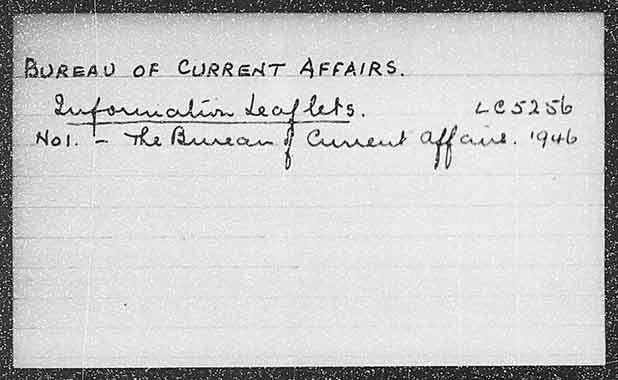 BUREAU OF CURRENT AFFAIRS.
Information Leaflets. LC5256
No1. - The Bureau of Current Affairs. 1946